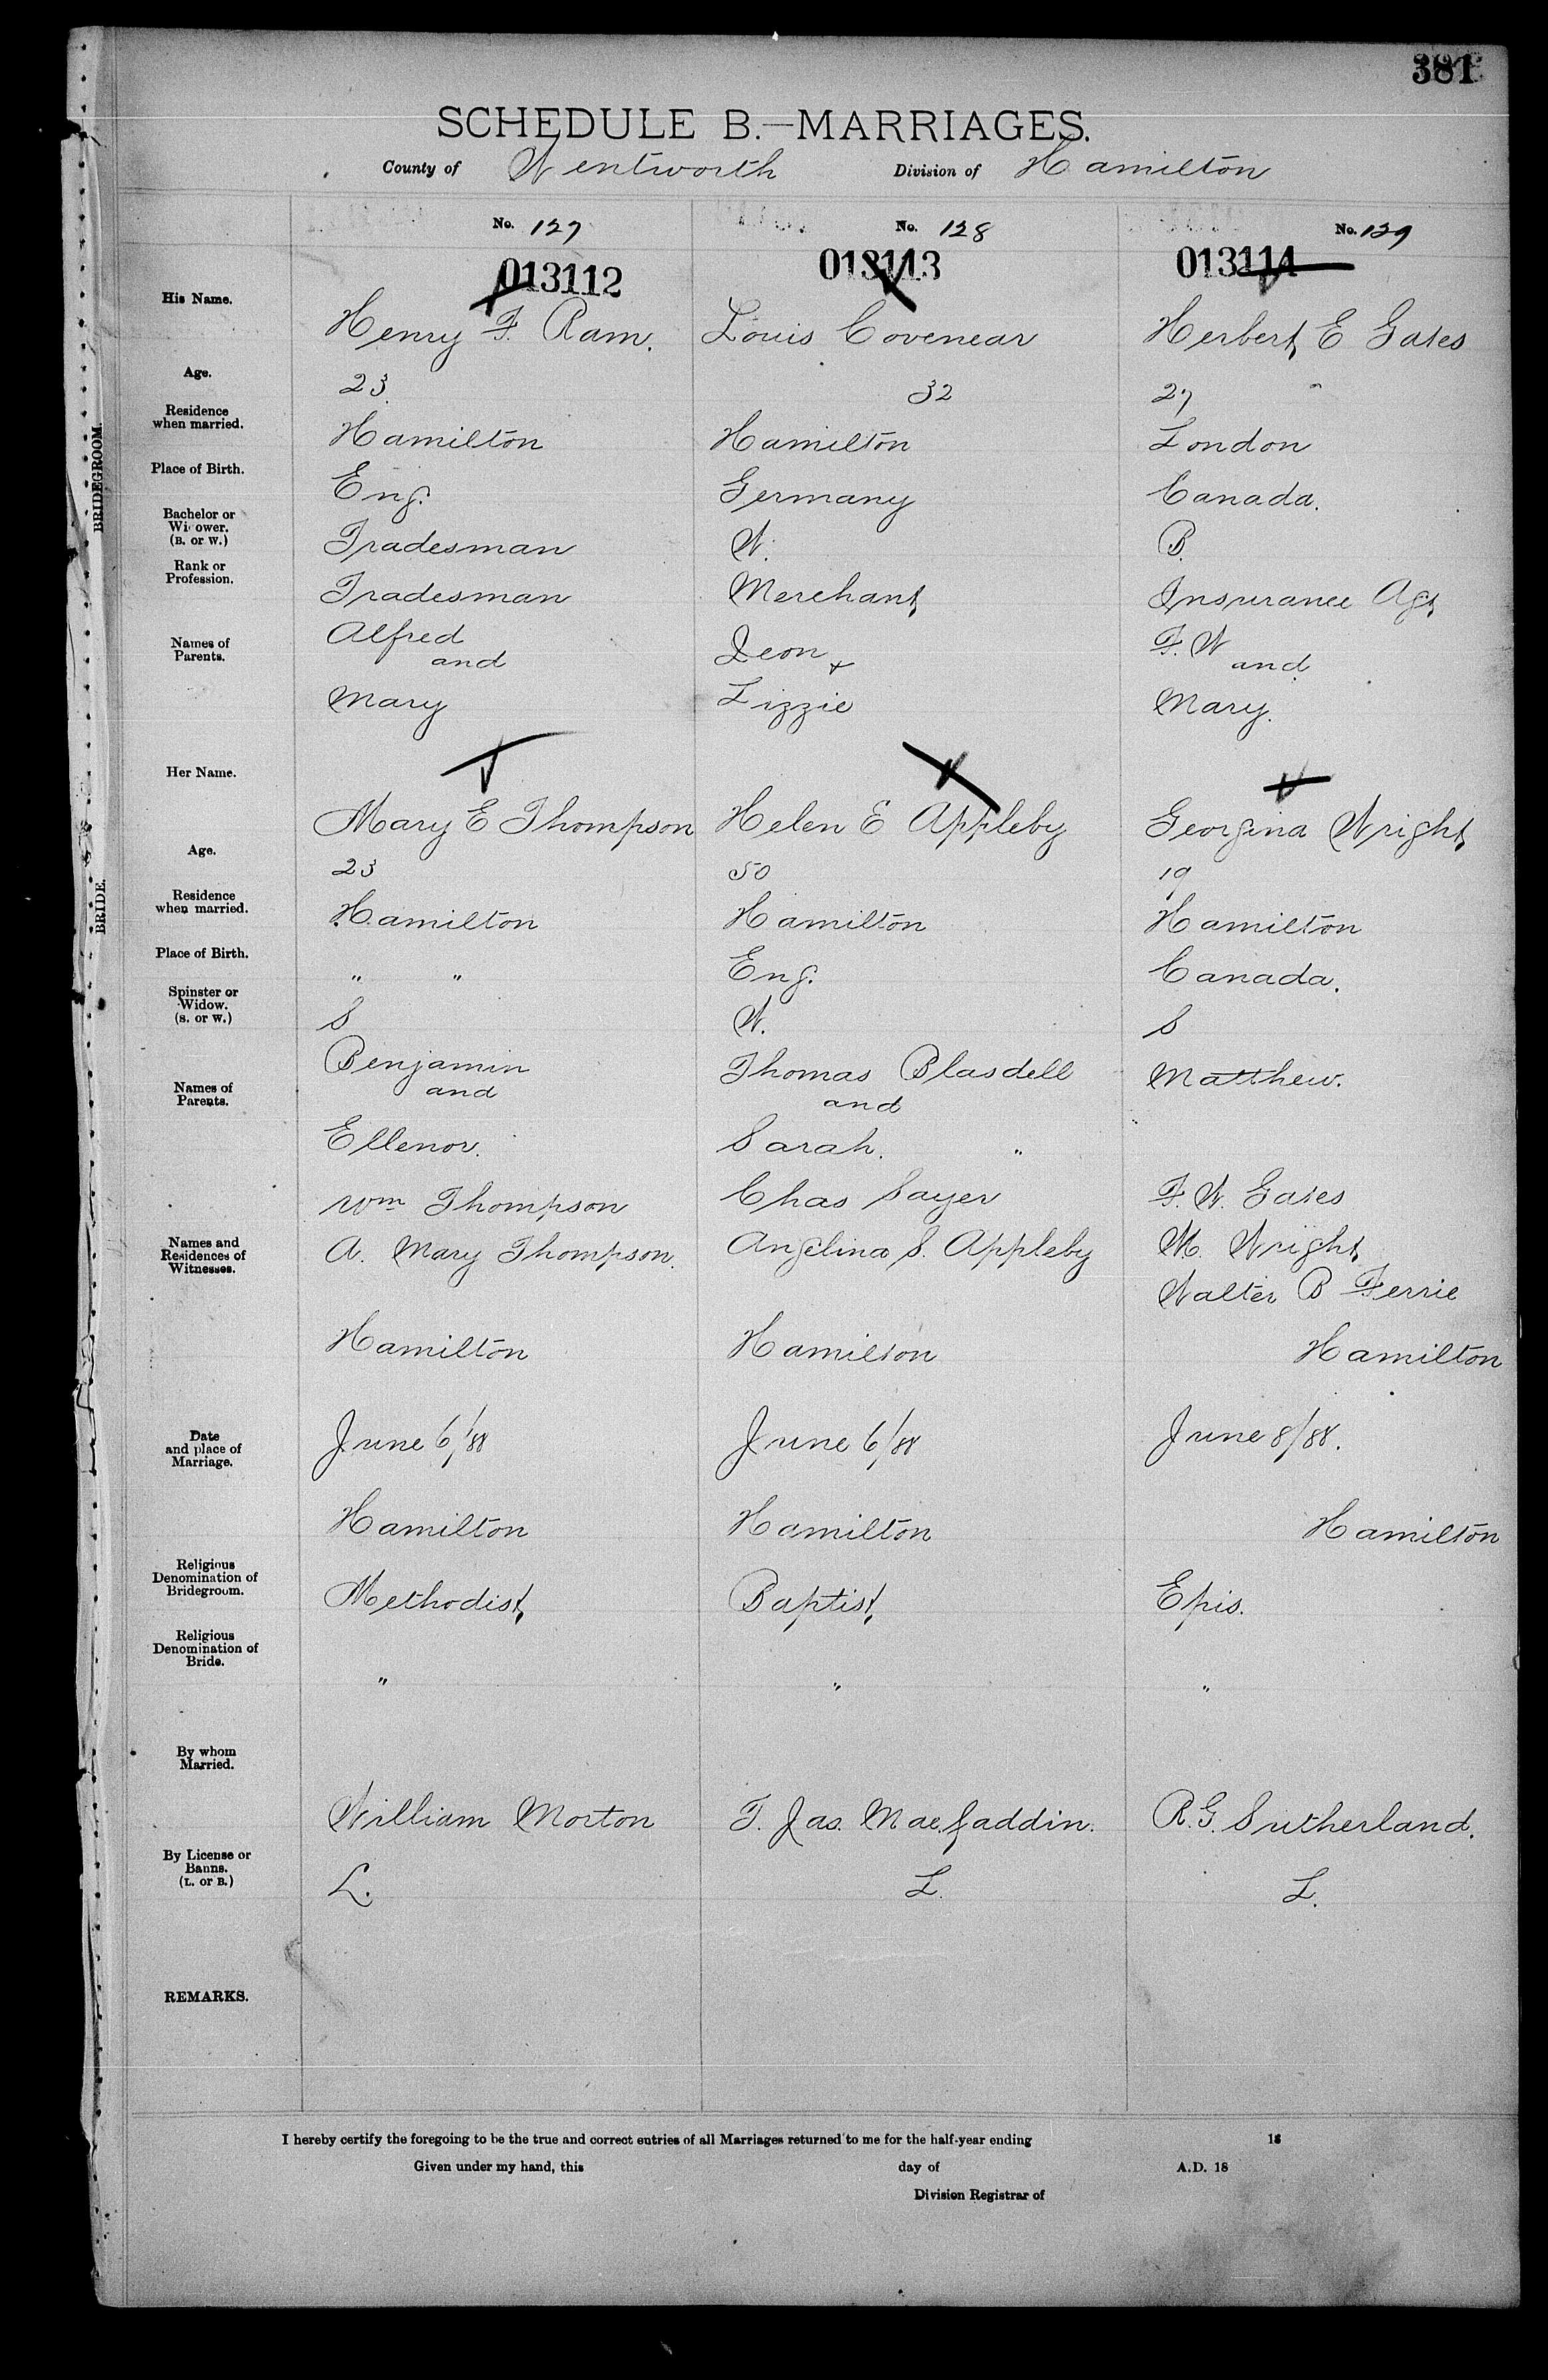 381
SCHEDULE B.—MARRIAGES.
County of Wentworth Division of Hamilton
No. 127 No. 128 No. 129
013112 013113 013114
BRIDEGROOM.
His Name. Henry F. Ram. Louis Covenear Herbert E Gates
Age. 23. 32 27
Residence when married. Hamilton Hamilton London
Place of Birth. Eng. Germany Canada.
Bachelor or Widower. (B. or W.) Tradesman W. B.
Rank or Profession. Tradesman Merchant Insurance Agt
Names of Parents. Alfred and Leon + F. W and
Mary Lizzie Mary.
BRIDE.
Her Name. Mary E Thompson Helen E Appleby Georgina Wright
Age. 23 50 19
Residence when married. Hamilton Hamilton Hamilton
Place of Birth. " " Eng. Canada.
Spinster or Widow. (S. or W.) S W. S
Names of Parents. Benjamin and Thomas Blasdell and Matthew.
Ellenor. Sarah. "
Names and Residences of Witnesses. Wm Thompson Chas Sayer F. W. Gates
A. Mary Thompson. Angelina S. Appleby M. Wright
Walter B Ferrie
Hamilton Hamilton Hamilton
Date and place of Marriage. June 6/88 June 6/88 June 8/88.
Hamilton Hamilton Hamilton
Religious Denomination of Bridegroom. Methodist Baptist Epis.
Religious Denomination of Bride. " " "
By whom Married. William Morton T. Jas. Macfaddin. R. G. Sutherland.
By License or Banns. (L. or B.) L. L. L.
REMARKS.
I hereby certify the foregoing to be the true and correct entries of all Marriages returned to me for the half-year ending 18
Given under my hand, this day of A.D. 18
Division Registrar of